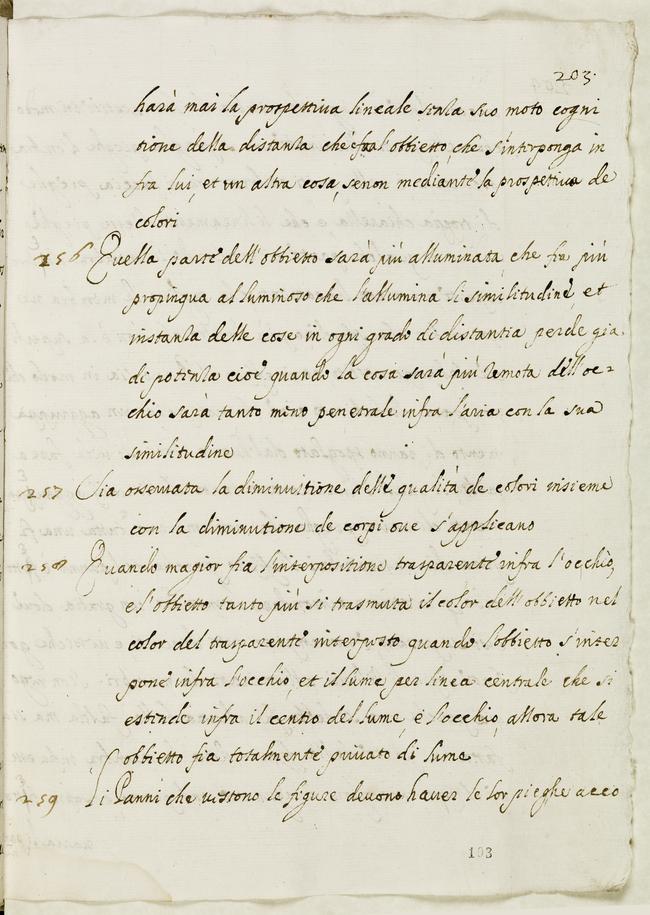 203.
harà mai la prospettiva lineale senza suo moto cogni
tione della distanza che fra l'obbietto, che s'interponga in
fra lui, et un altra cosa, senon mediante la prospetiva de
colori
256 Quella parte dell'obbietto sarà più alluminata, che fia più
propinqua al luminoso che l'allumina li similitudine, et
instanza delle cose in ogni grado di distantia perde gra.
di potenza cioè quando la cosa sarà più remota dell'oc-
chio sarà tanto meno penetrale infra l'aria con la sua
similitudine
257 Sia osservata la diminuitione delle qualità de colori insieme
con la diminutione de corpi ove s'applicano
258 Quando magior fia l'interpositione trasparente infra l'occhio,
e l'obietto tanto più si trasmuta il color dell'obbietto nel
color del trasparente interposto quando l'obbietto s'inter
pone infra l'occhio, et il lume per linea centrale che si
estende infra il centro del lume, e l'occhio, allora tale
obbietto fia totalmente privato di lume
259 Li Panni che vestono le figure devono haver le lor pieghe acco
103